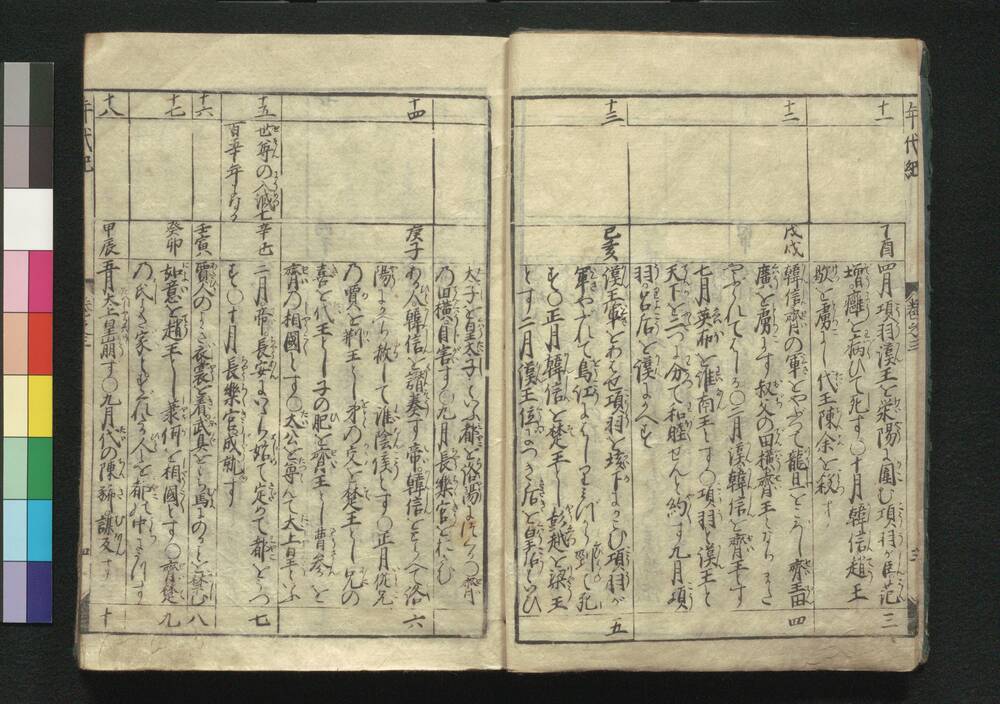 年代紀
十一
丁酉
四月項羽漢王を栄陽に囲む項羽が臣范
増癰を病ひて死す〇十月韓信趙王
歇を虜にし代王陳余を殺す
三
十二
戊戌
韓信齊の軍をやぶつて龍且をころし齊王田
廣を虜にす叔父の田横齊王となりまた
やぶれてはしる〇二月漢韓信を齊王とす
七月英布を淮南王とす〇項羽と漢王と
天下を二つに分て和睦せんと約す九月項
羽呂后を漢にかへす
四
十三
己亥
漢王軍をあはせ項羽を垓下にかこむ項羽が
軍やぶれて烏江にはしりみづから剄し死
す〇正月韓信を楚王とし彭越を梁王
とす二月漢王位につき后を皇后といひ
五
太子を皇太子といふ都を洛陽に
の田横自害す〇九月長樂宮を
十四
庚子
ある人韓信を讒奏す帝韓信をとらへて洛
陽にかへり赦して淮陰侯とす〇正月従兄
の賈を荊王とし弟の交を楚王とし兄の
喜を代王とし子の肥を齊王とし曹参を
齊の相國とす〇太公を尊んで太上皇といふ
六
十五
世尊の入滅七
百年
辛丑
二月帝長安にいたり始て定めて都とし
す〇十月長樂宮成就す
七
十六
壬寅
賈人の
八
十七
癸卯
如意を趙王とし蕭何を相國とす〇齊楚
の氏
九
十八
甲辰
五月太上皇崩す〇九月代の陳豨謀反す
十
年代紀